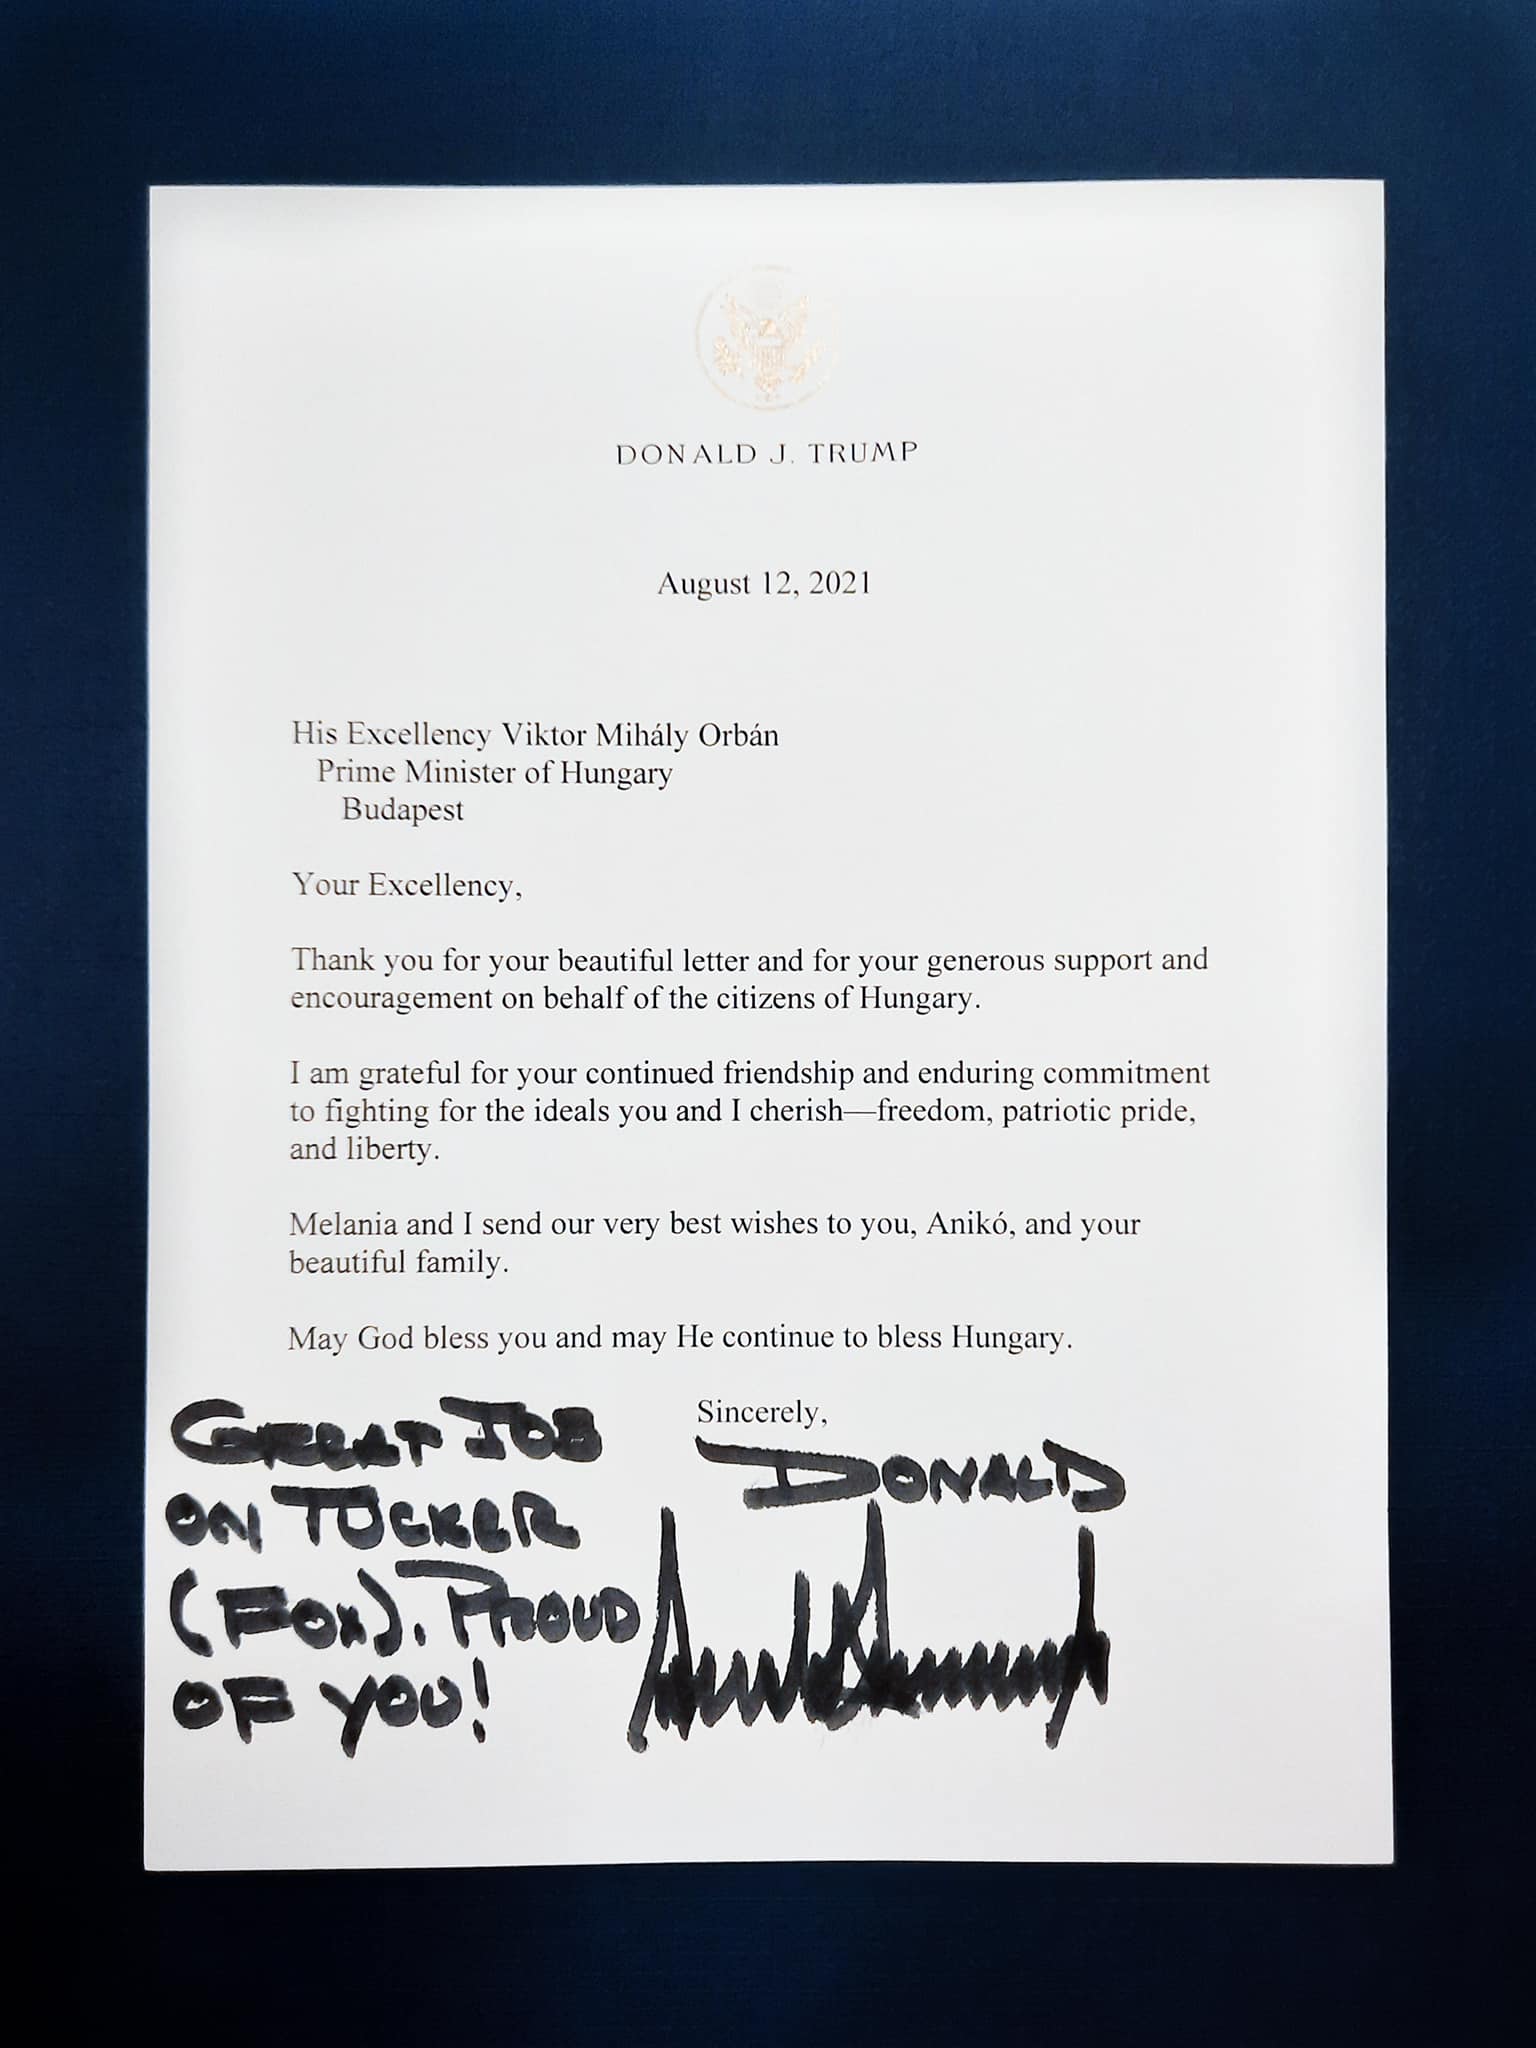 DONALD J. TRUMP
August 12, 2021
His Excellency Viktor Mihály Orbán
Prime Minister of Hungary
Budapest
Your Excellency,
Thank you for your beautiful letter and for your generous support and
encouragement on behalf of the citizens of Hungary.
I am grateful for your continued friendship and enduring commitment
to fighting for the ideals you and I cherish—freedom, patriotic pride,
and liberty.
Melania and I send our very best wishes to you, Anikó, and your
beautiful family.
May God bless you and may He continue to bless Hungary.
Sincerely,
DONALD
GREAT JOB
ON TUCKER
(FOX). PROUD
OF YOU!